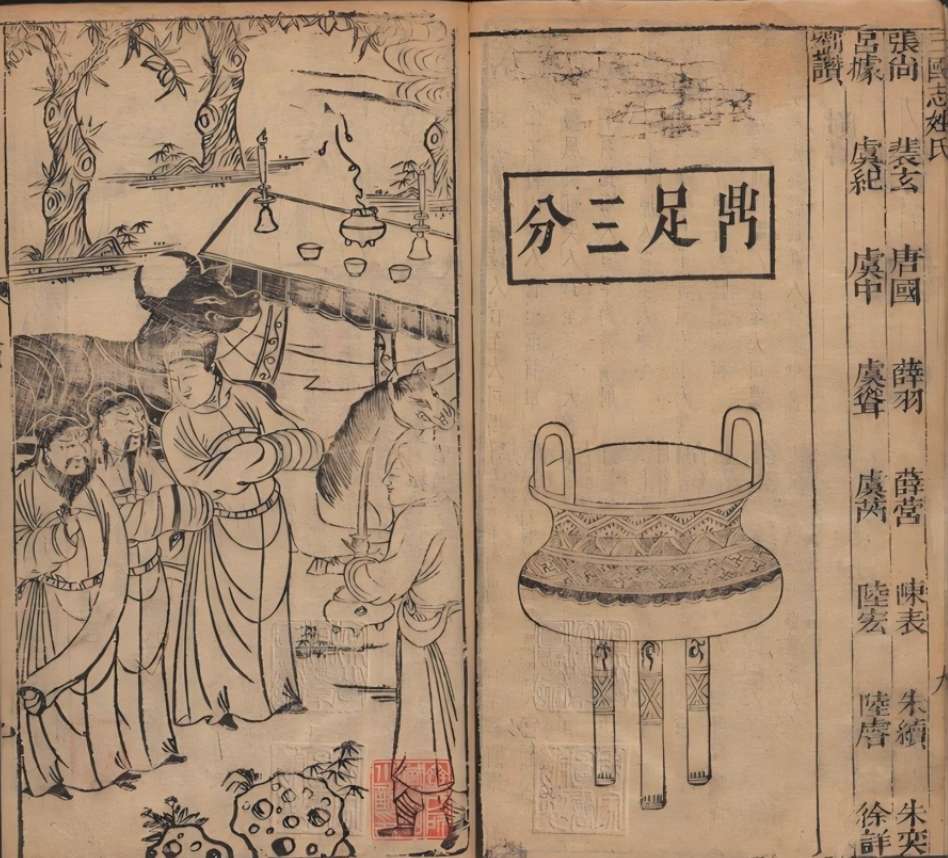 三國志姓氏
張尚 裴玄 唐國 薛羽 薛營 陳表 朱續 朱奕
呂據 虞紀 虞中 虞聳 虞 陸宏 陸 徐詳
讚
九
鼎足三分